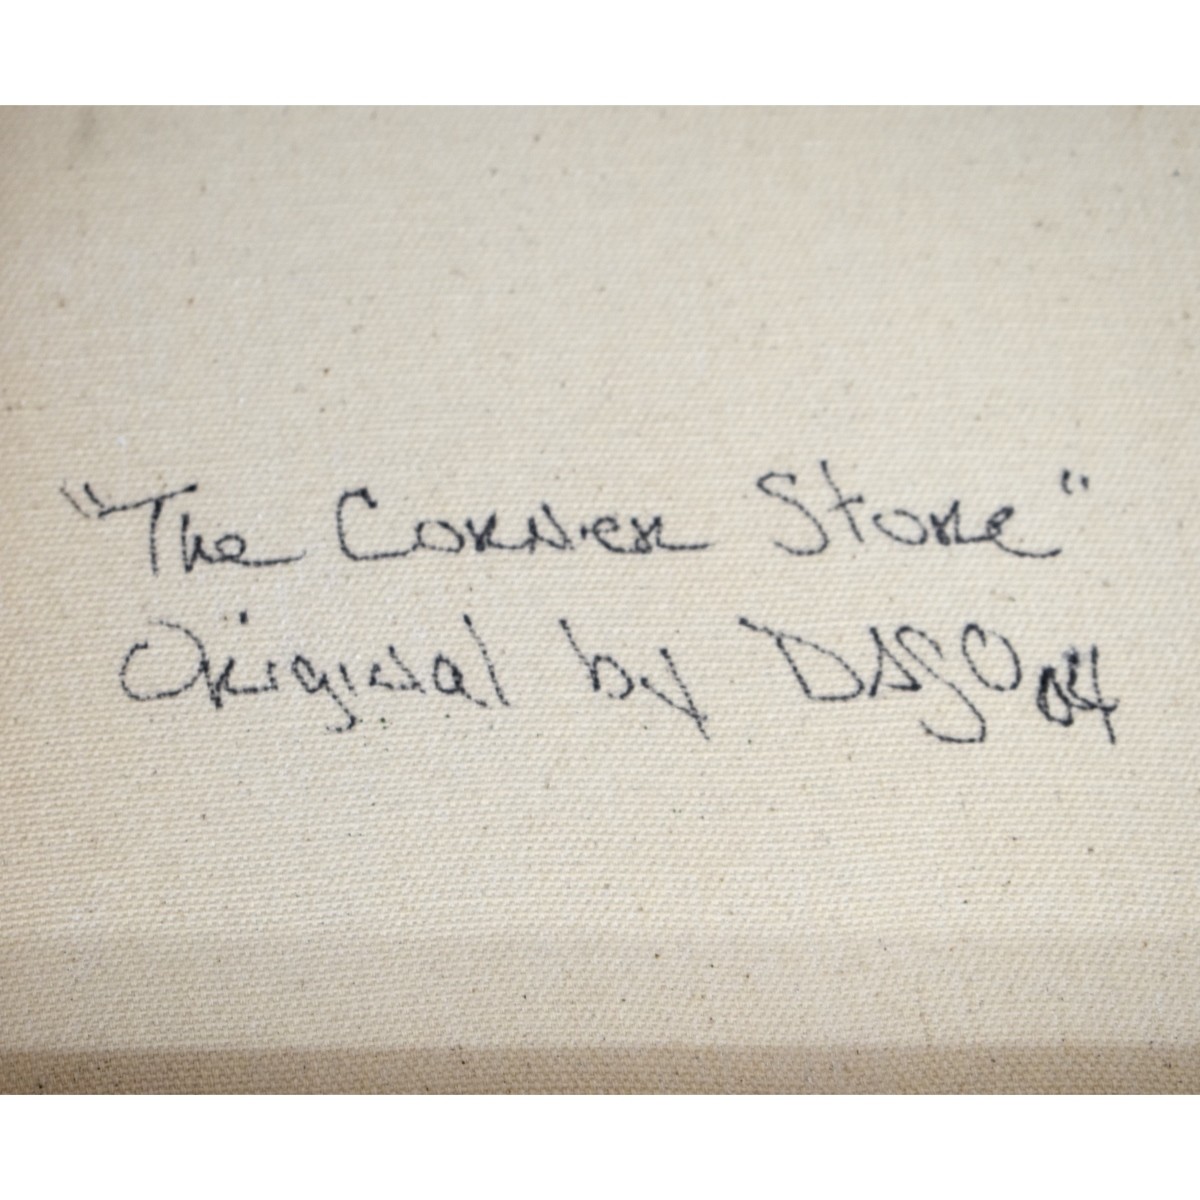 "The Corner Store"
Original by DAGO 04